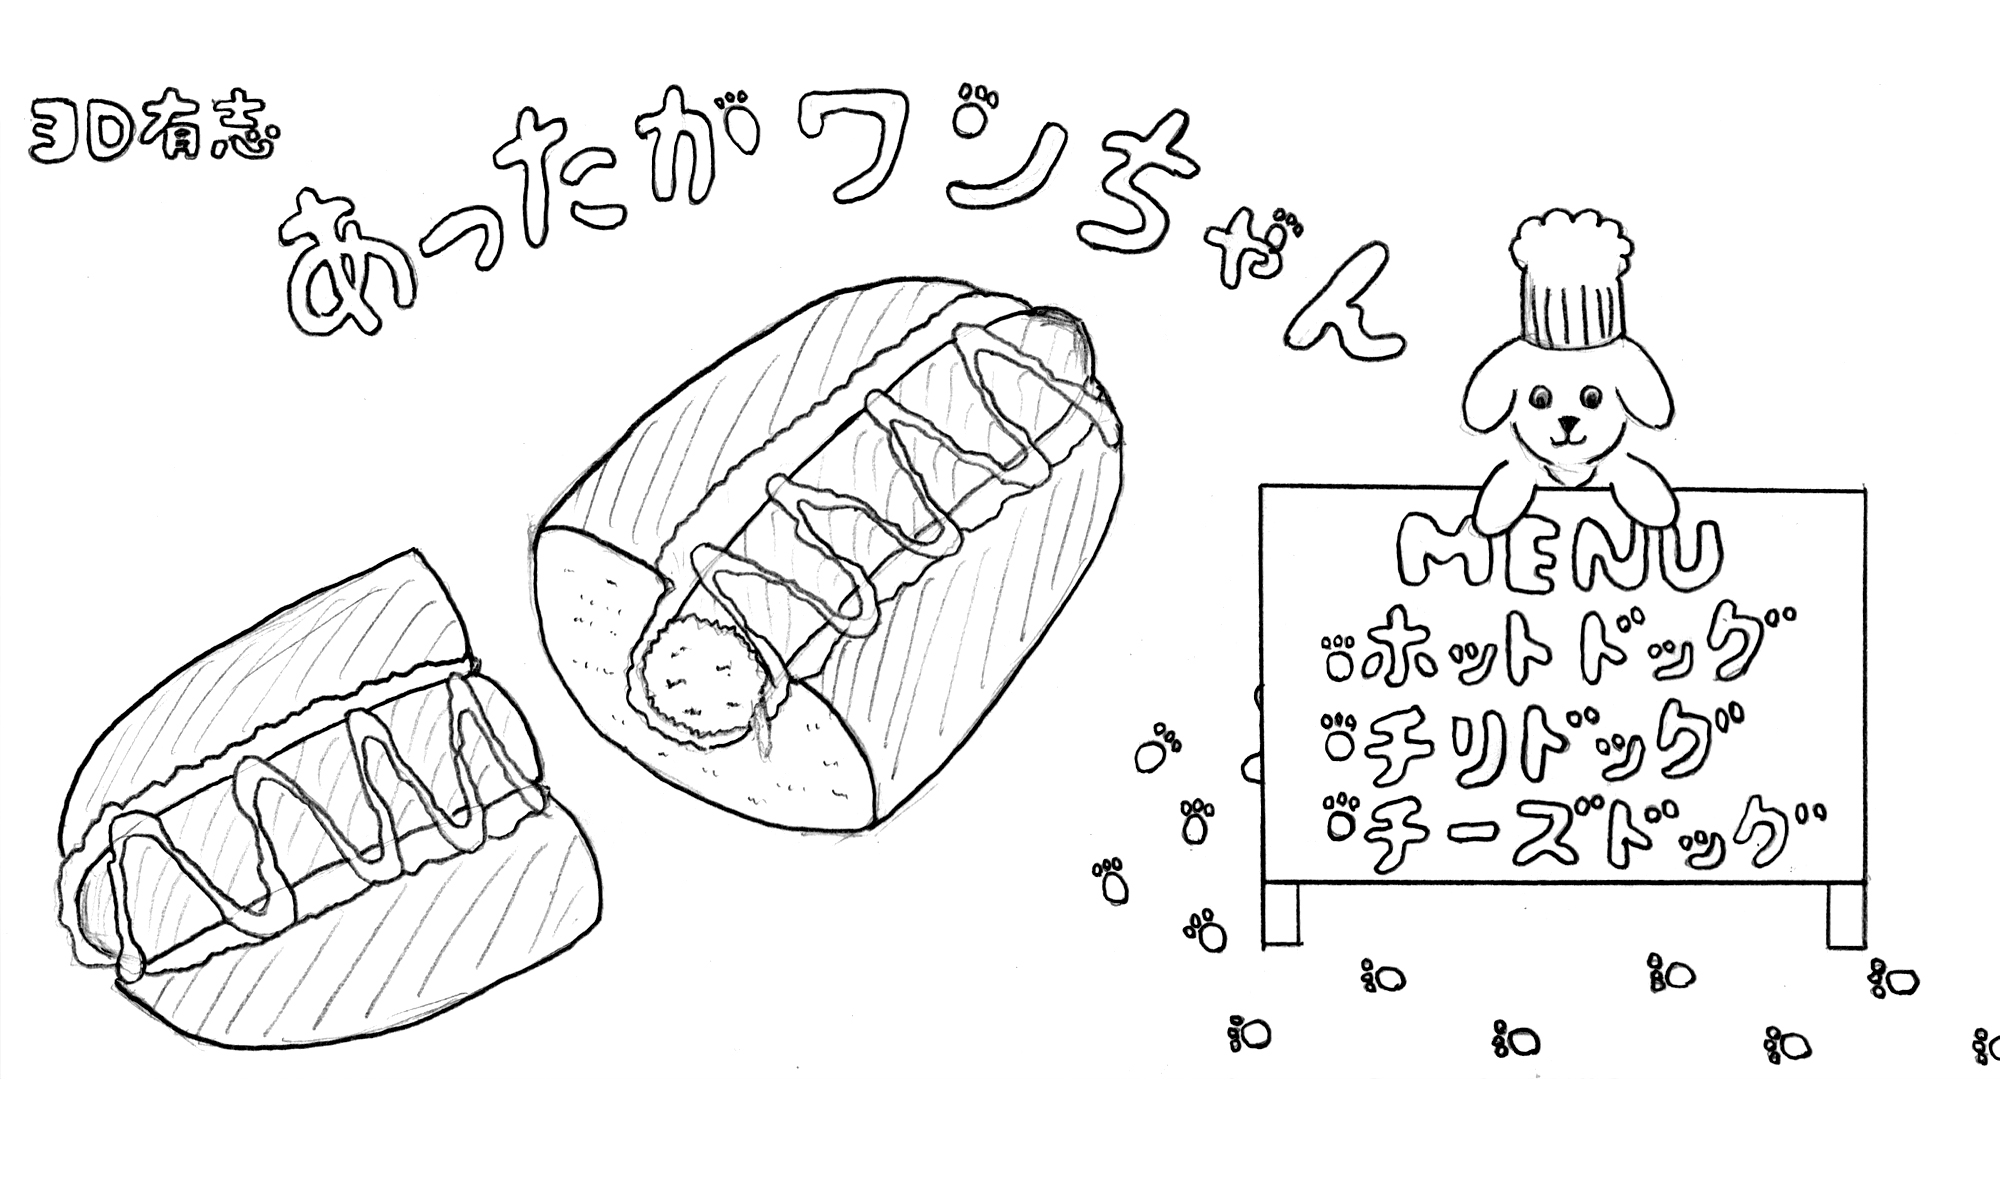 3D有志
あったがワンちゃん
MENU
ホットドッグ
チリドッグ
チーズドッグ